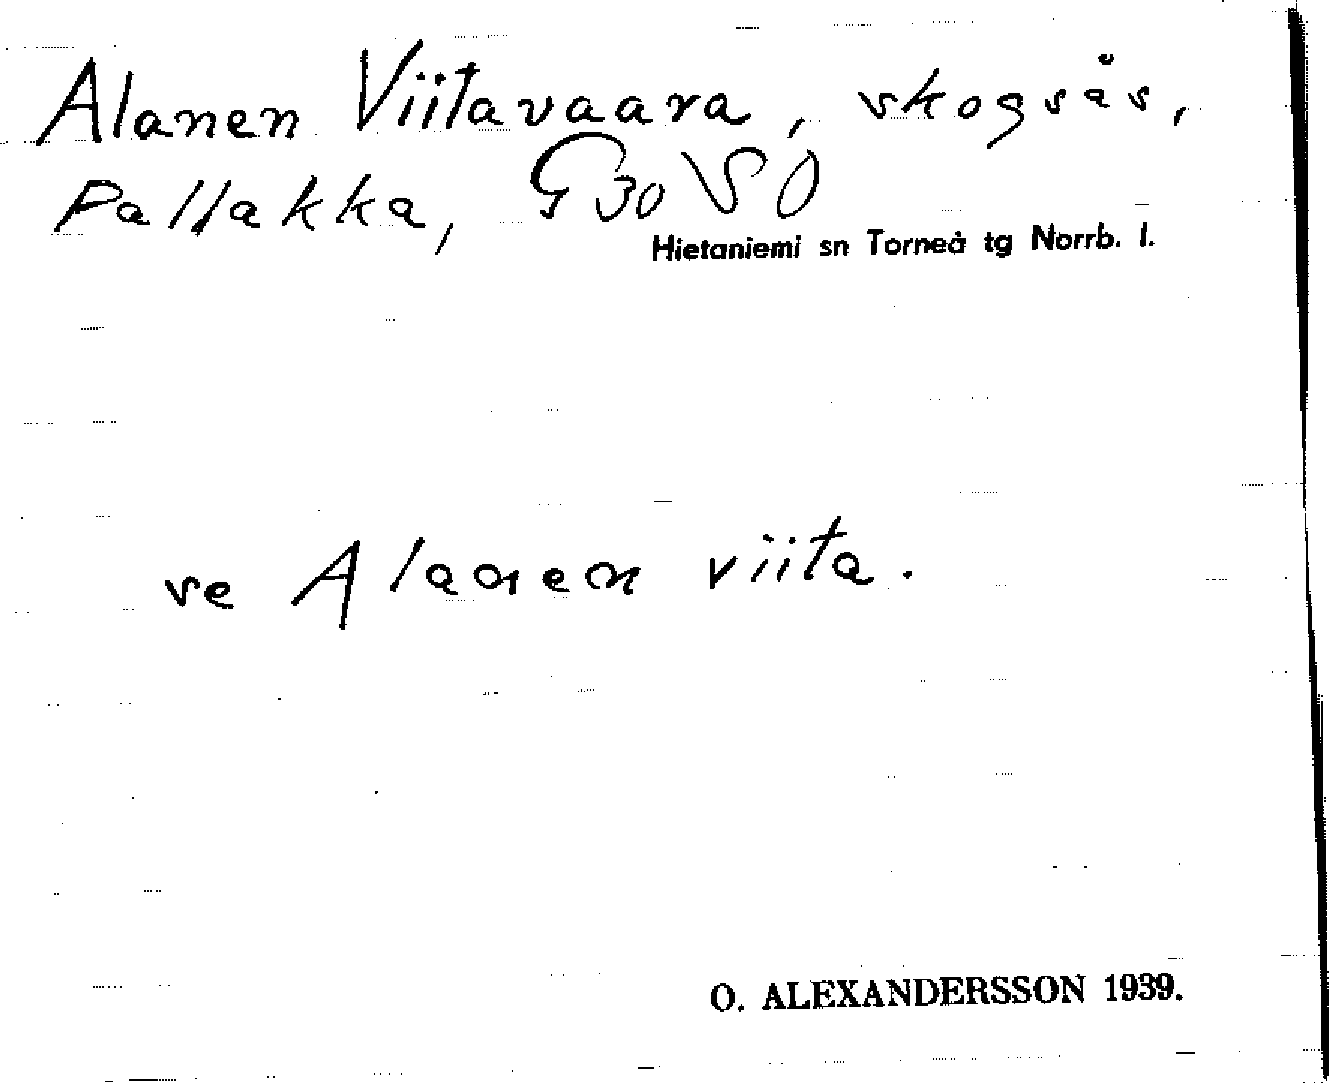 Alanen Viitavaara, skogsås,
Pallakka, G 30 SO
Hietaniemi sn Torneå tg Norrb. l.
se Alanen viita.
O. ALEXANDERSSON 1939.